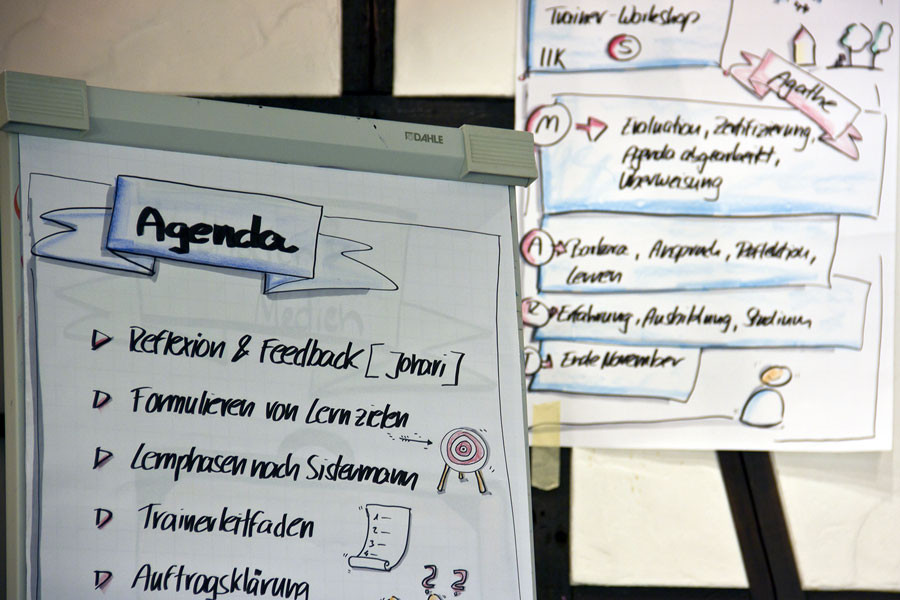 DAHLE
Agenda
Reflexion & Feedback [Johari]
Formulieren von Lernzielen
Lernphasen nach Sistermann
Trainerleitfaden
1
2
3
4
Auftragsklärung
? ?
Trainer-Workshop
IIK S
Agathe
M Evaluation, Zertifizierung,
Agenda abgearbeitet,
Überweisung
A Barbara, Ansprach, Reflektion,
lernen
R Erfahrung, Ausbildung, Studium
T Ende November